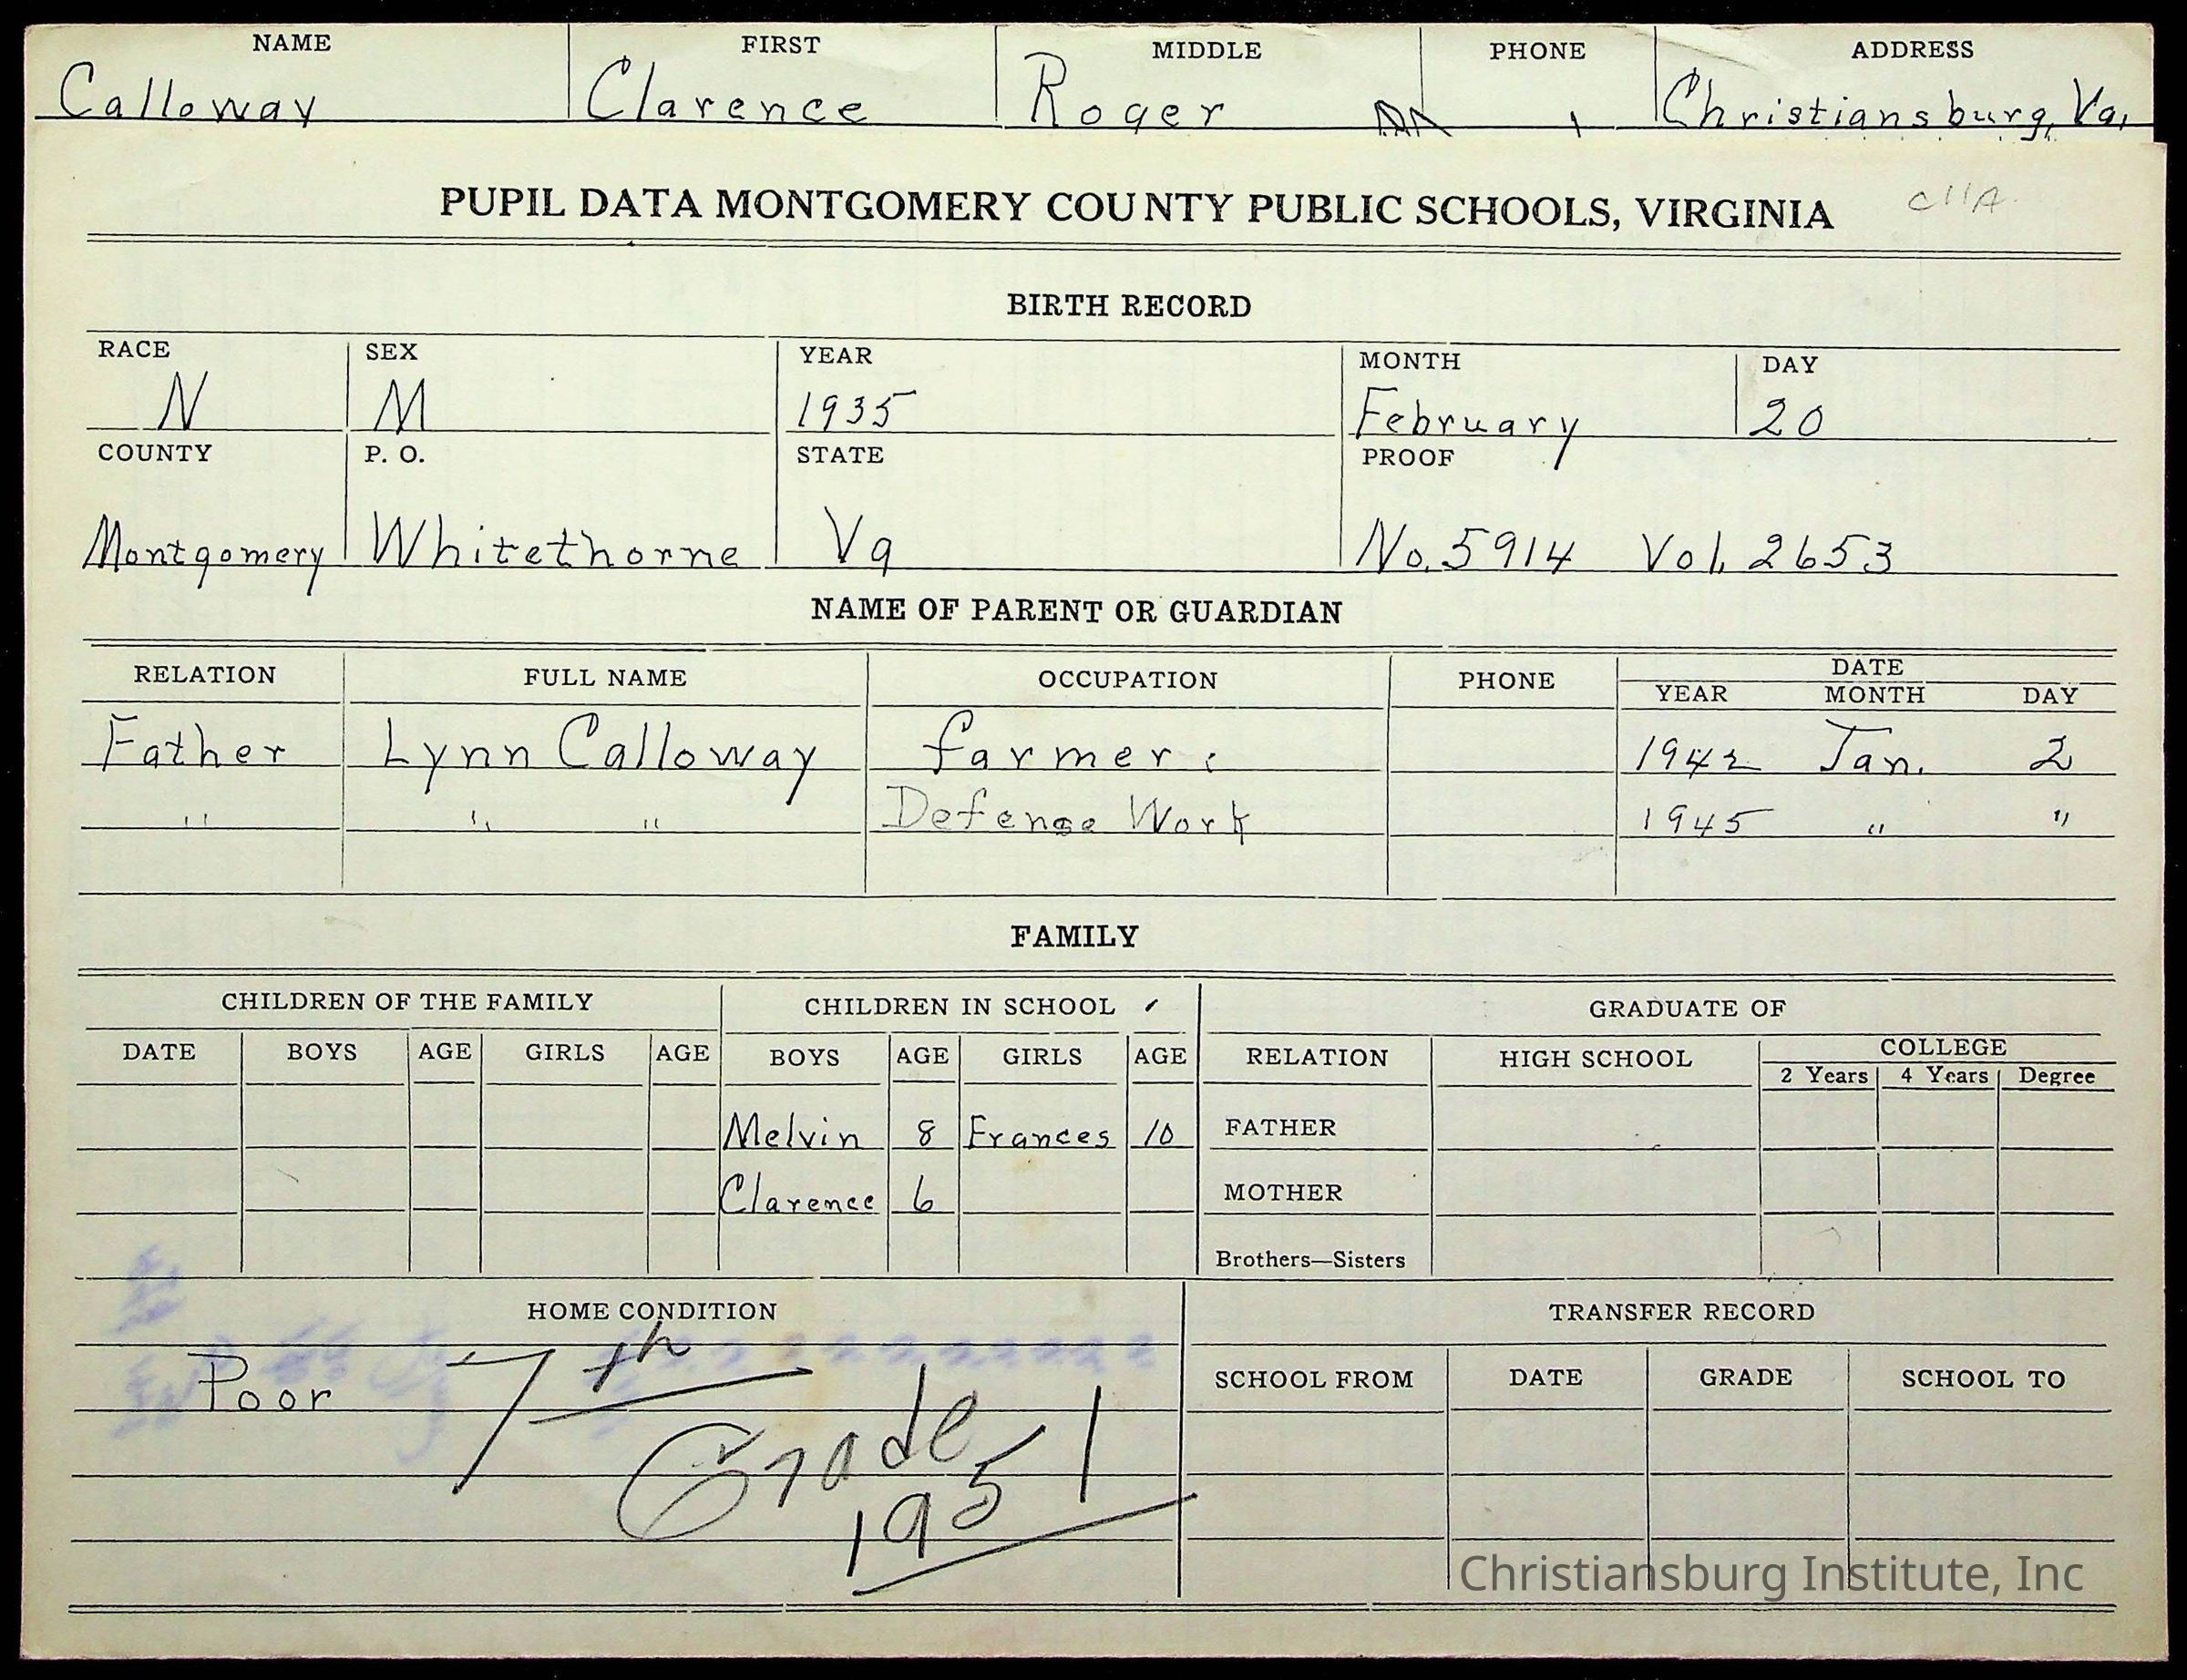 NAME FIRST MIDDLE PHONE ADDRESS
Calloway Clarence Roger Christiansburg, Va.
PUPIL DATA MONTGOMERY COUNTY PUBLIC SCHOOLS, VIRGINIA C11A
BIRTH RECORD
RACE SEX YEAR MONTH DAY
N M 1935 February 20
COUNTY P. O. STATE PROOF
Montgomery Whitethorne Va No. 5914 Vol. 2653
NAME OF PARENT OR GUARDIAN
RELATION FULL NAME OCCUPATION PHONE DATE
YEAR MONTH DAY
Father Lynn Calloway farmer 1942 Jan. 2
" " " Defense Work 1945 " "
FAMILY
CHILDREN OF THE FAMILY CHILDREN IN SCHOOL GRADUATE OF
DATE BOYS AGE GIRLS AGE BOYS AGE GIRLS AGE RELATION HIGH SCHOOL COLLEGE
2 Years 4 Years Degree
Melvin 8 Frances 10 FATHER
Clarence 6 MOTHER
Brothers—Sisters
HOME CONDITION TRANSFER RECORD
Poor 7th SCHOOL FROM DATE GRADE SCHOOL TO
Grade
1951
Christiansburg Institute, Inc